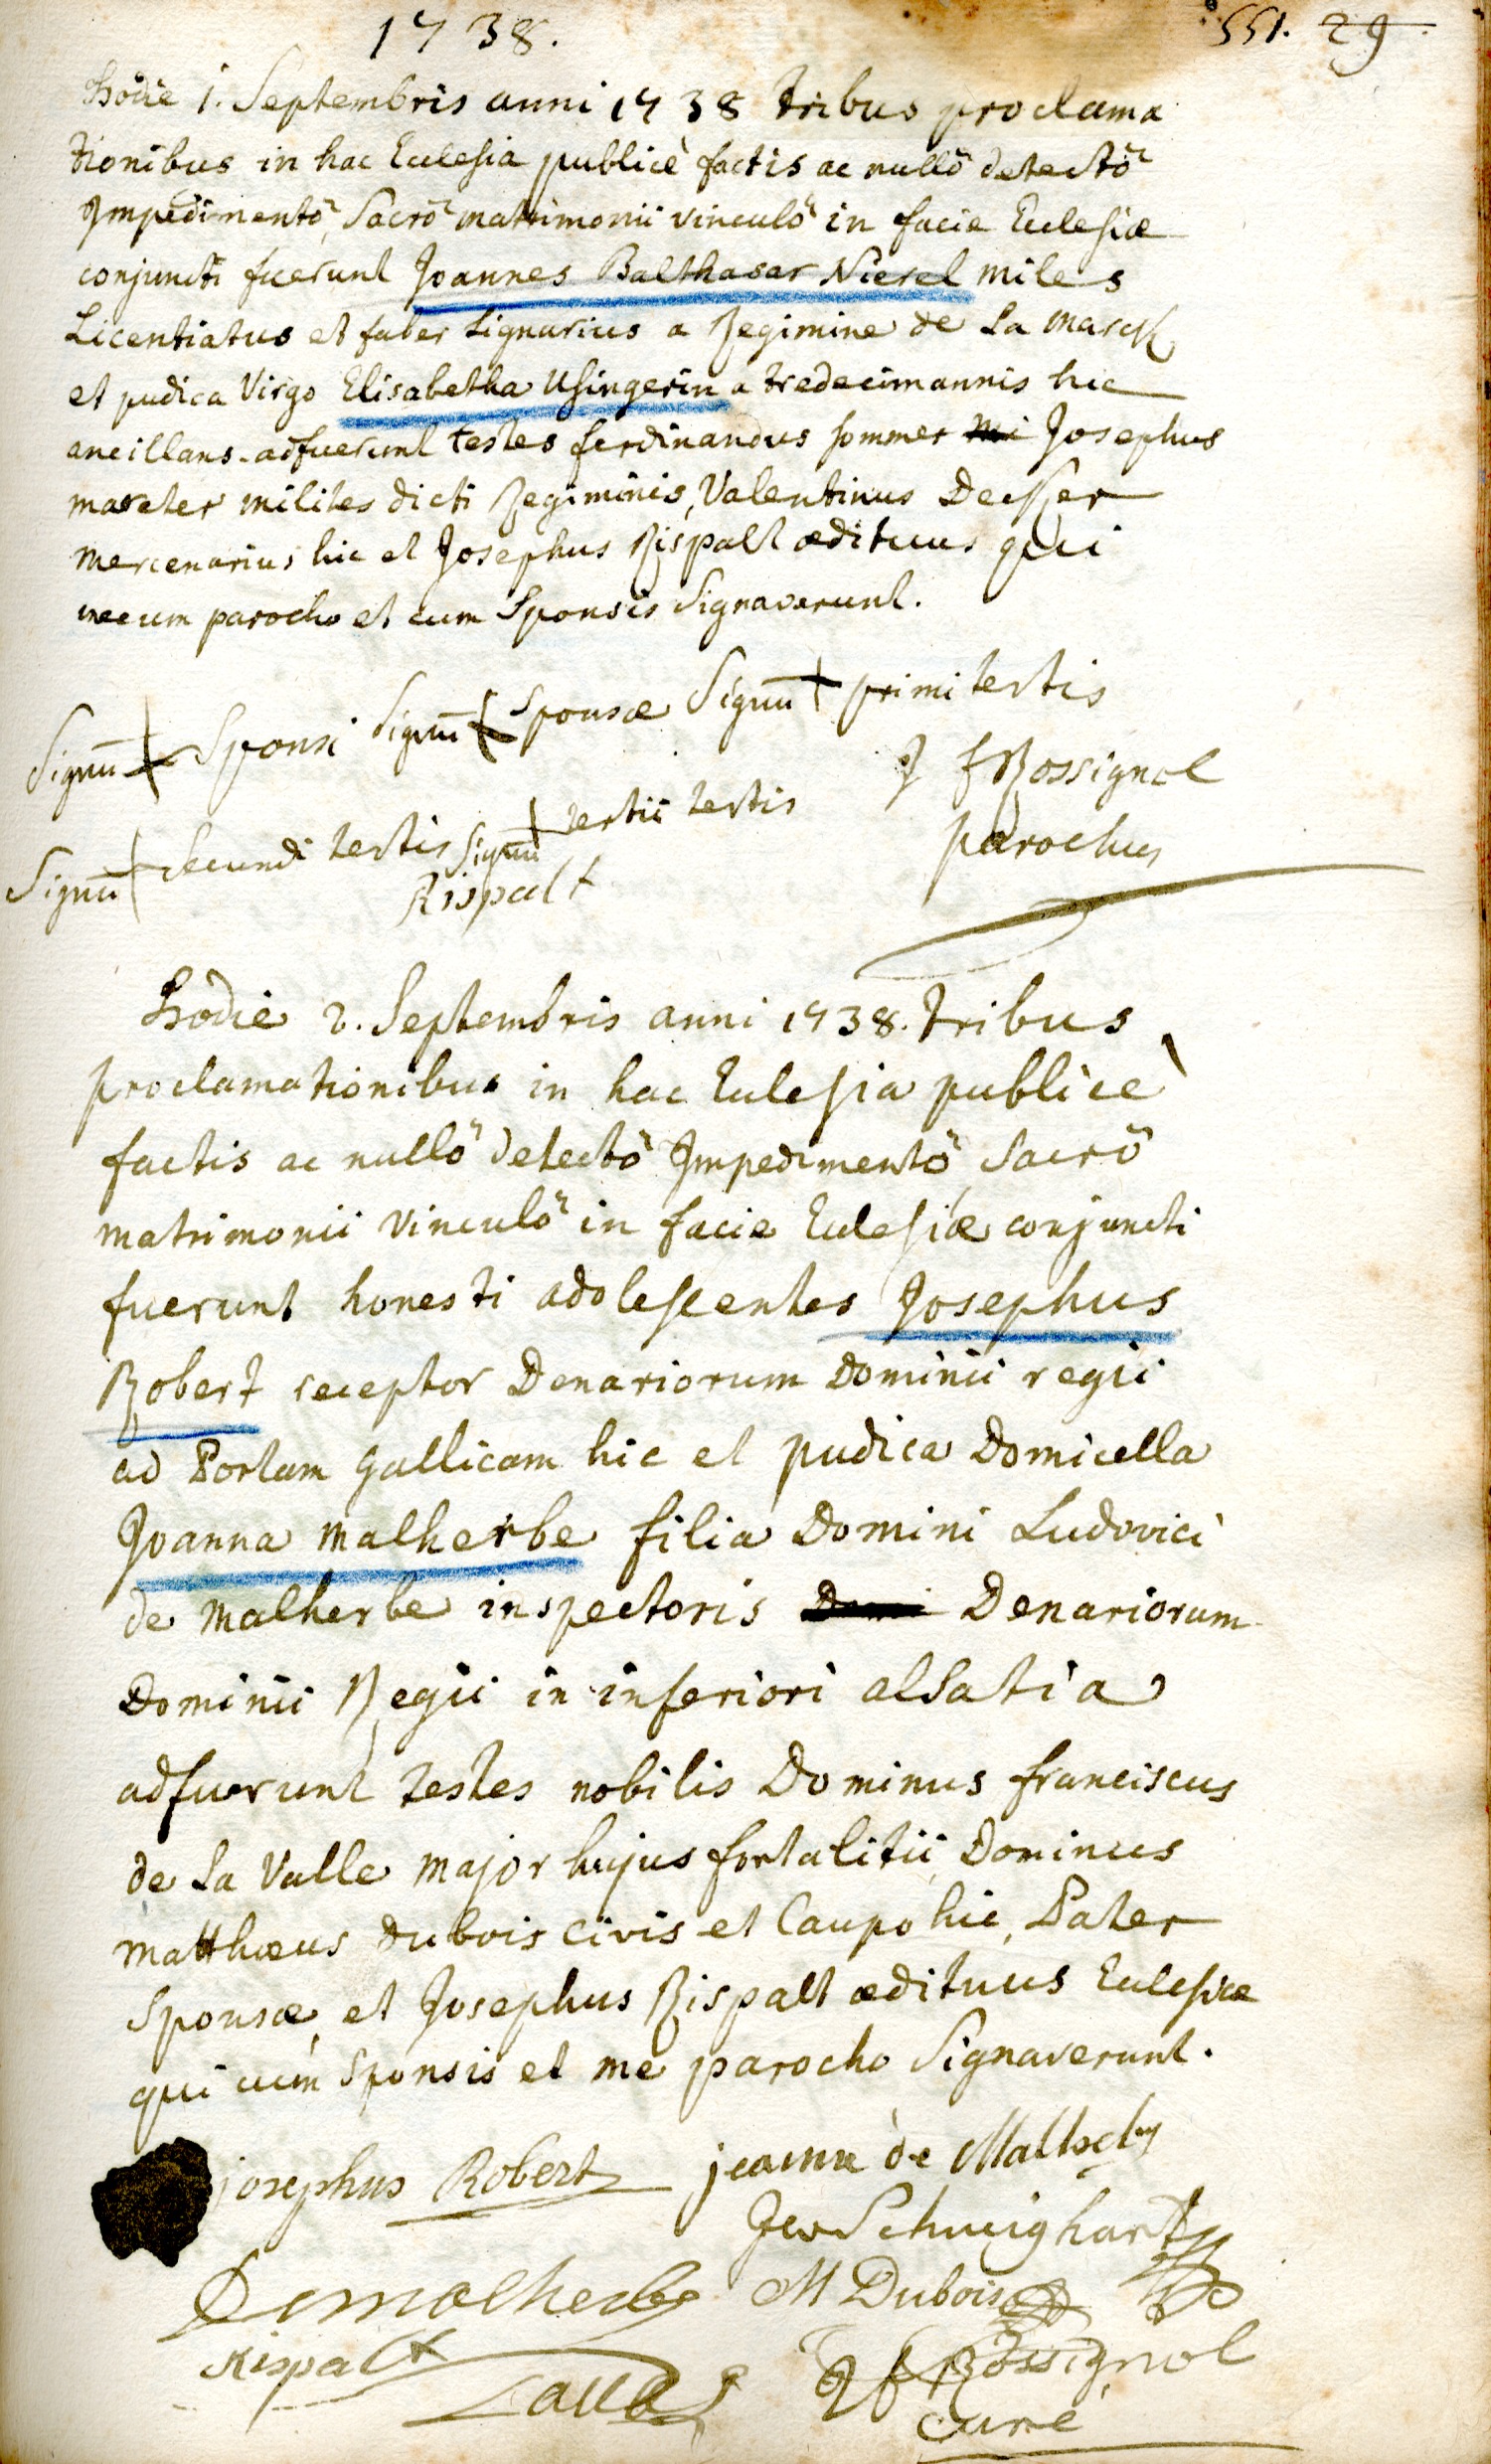 1738.
551. 29
Hodie 1. Septembris anni 1738 tribus proclama
tionibus in hac Ecclesia publicè factis ac nullô detectô
Impedimentô, Sacrô matrimonii vinculô in facie Ecclesiæ
conjuncti fuerunt Joannes Balthasar Nierel miles
Licentiatus et faber Lignarius a Regimine de La Marck
et pudica Virgo Elisabetha Usingerin a tredecim annis hic
ancillans. adfuerunt testes ferdinandus sommer Josephus
mareter milites dicti Regiminis, Valentinus Decker
mercenarius hic et Josephus Rispalt ædituus qui
mecum parocho et cum Sponsis Signaverunt.
Signū Sponsi Signū Sponsæ Signū primi testis
J f Rossignol
Signū Secundi testis Signū tertii testis
parochus
Rispalt
Hodie 2. Septembris anni 1738. tribus
proclamationibus in hac Ecclesia publicè
factis ac nullô detectô Impedimentô Sacrô
matrimonii vinculô in facie Ecclesiæ conjuncti
fuerunt honesti adolescentes Josephus
Robert receptor Denariorum Dominii regii
ad Portam Gallicam hic et pudica Domicella
Joanna Malherbe filia Domini Ludovici
de Malherbe inspectoris Denariorum
Dominii Regii in inferiori alsatia
adfuerunt testes nobilis Dominus franciscus
de La Valle major hujus fortalitii Dominus
matthæus dubois civis et Caupo hic, Pater
Sponsæ, et Josephus Rispalt ædituus Ecclesiæ
qui cum Sponsis et me parocho Signaverunt.
josephus Robert jeanne de
Schweighart
Demalherbe M Dubois
Rispalt J f Rossignol
Lavalle
curé